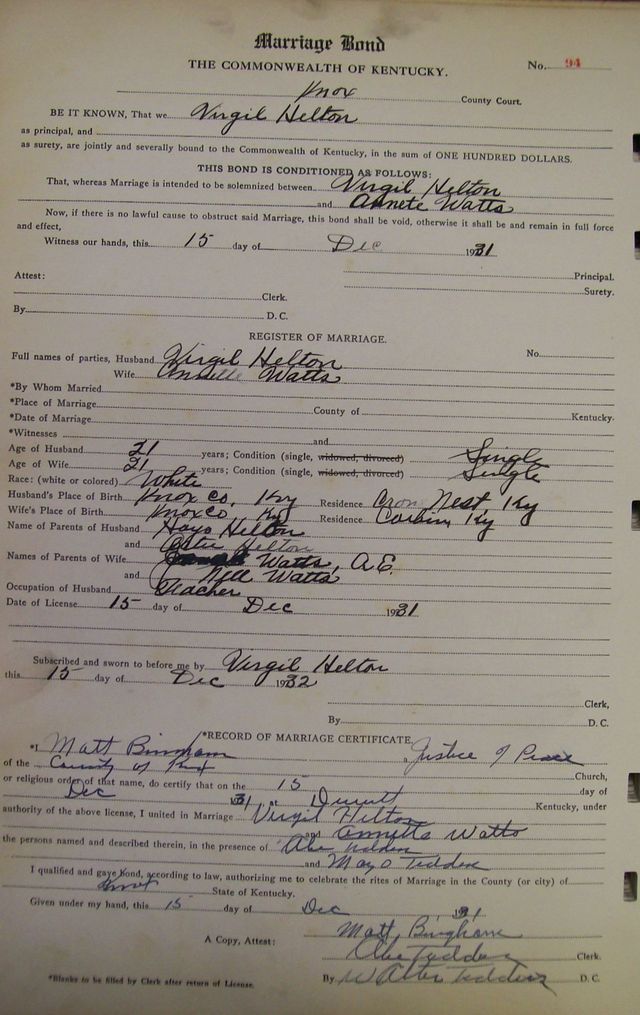 Marriage Bond
THE COMMONWEALTH OF KENTUCKY. No. 94
Knox County Court.
BE IT KNOWN, That we Virgil Helton
as principal, and
as surety, are jointly and severally bound to the Commonwealth of Kentucky, in the sum of ONE HUNDRED DOLLARS.
THIS BOND IS CONDITIONED AS FOLLOWS:
That, whereas Marriage is intended to be solemnized between Virgil Helton
and Annete Watts
Now, if there is no lawful cause to obstruct said Marriage, this bond shall be void, otherwise it shall be and remain in full force
and effect,
Witness our hands, this 15 day of Dec 1931
Attest: Principal.
Surety.
Clerk.
By D. C.
REGISTER OF MARRIAGE.
Full names of parties, Husband Virgil Helton No.
Wife Watts
*By Whom Married
*Place of Marriage County of Kentucky.
*Date of Marriage
*Witnesses and
Age of Husband 21 years; Condition (single, widowed, divorced) Single
Age of Wife 21 years; Condition (single, widowed, divorced) Single
Race: (white or colored) White
Husband's Place of Birth Knox Co, Ky Residence Nest Ky
Wife's Place of Birth Knox Co Ky Residence Corbin Ky
Name of Parents of Husband Helton
and Helton
Names of Parents of Wife Watts, A.E.
and Nell Watts
Occupation of Husband Teacher
Date of License 15 day of Dec 1931
Subscribed and sworn to before me by Virgil Helton
this 15 day of Dec 1932
Clerk,
By D. C.
*RECORD OF MARRIAGE CERTIFICATE
*I Matt Bingham a Justice of Peace
of the County of Knox Church,
or religious order of that name, do certify that on the 15 day of
Dec 1931 at Kentucky, under
authority of the above license, I united in Marriage Virgil Helton
and Annetta Watts
the persons named and described therein, in the presence of
and
I qualified and gave bond, according to law, authorizing me to celebrate the rites of Marriage in the County (or city) of
Knox State of Kentucky.
Given under my hand, this 15 day of Dec 1931
Matt Bingham
A Copy, Attest: Clerk.
*Blanks to be filled by Clerk after return of License. By D. C.